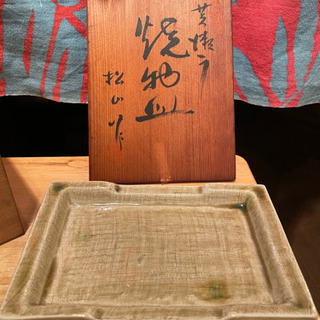 黄瀬戸
焼物皿
松山作